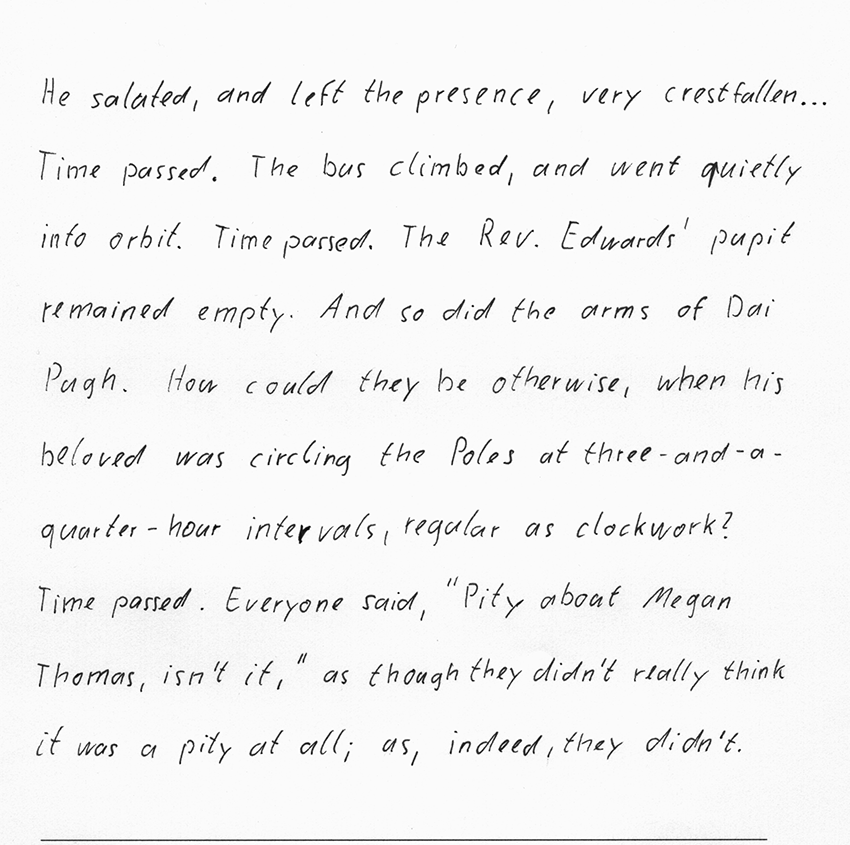 He saluted, and left the presence, very crestfallen...
Time passed. The bus climbed, and went quietly
into orbit. Time passed. The Rev. Edwards' pupit
remained empty. And so did the arms of Dai
Pugh. How could they be otherwise, when his
beloved was circling the Poles at three-and-a-
quarter-hour intervals, regular as clockwork?
Time passed. Everyone said, "Pity about Megan
Thomas, isn't it," as though they didn't really think
it was a pity at all; as, indeed, they didn't.